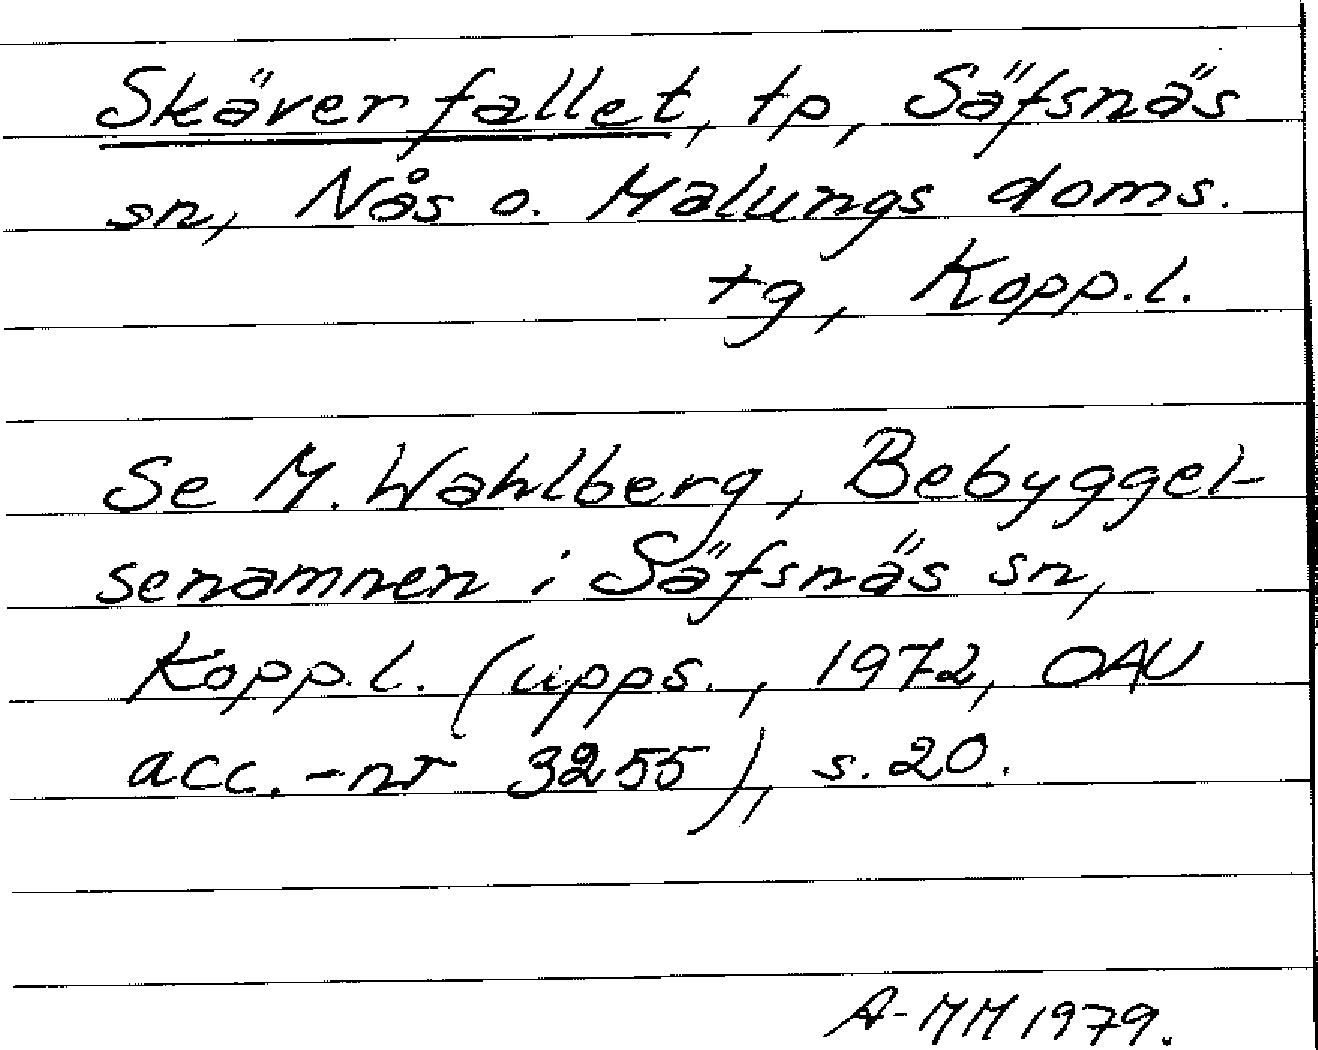 Skäverfallet, tp, Säfsnäs
sn, Nås o. Malungs doms.
tg, Kopp.l.
Se M. Wahlberg, Bebyggel-
senamnen i Säfsnäs sn,
Kopp.l. (upps., 1972, OAU
acc.-nr 3255), s.20.
A-MM 1979.